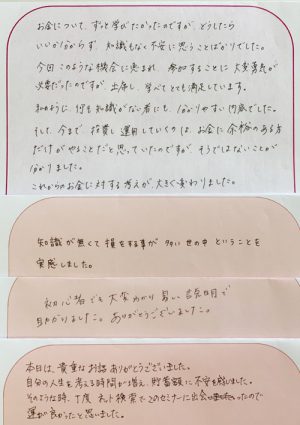 お金について、ずっと学びたかったのですが、どうしたら
いいか分からず、知識もなく不安に思うことばかりでした。
今回このような機会に恵まれ、参加することに大変勇気が
必要だったのですが、出席し、学べてとても満足しています。
私のように、何も知識がない者にも、分かりやすい内容でした。
そして、今まで投資し運用していくのは、お金に余裕のある方
だけがやることだと思っていたのですが、そうではないことが
分かりました。
これからのお金に対する考えが、大きく変わりました。
知識が無くて損をする事が多い世の中ということを
実感しました。
初心者でも大変わかり易い説明で
助かりました。ありがとうございました。
本日は、貴重なお話ありがとうございました。
自分の人生を考える時間が増え、貯蓄額に不安を感じました。
そのような時、丁度ネット検索でこのセミナーに出会ったので
運が良かったと思いました。